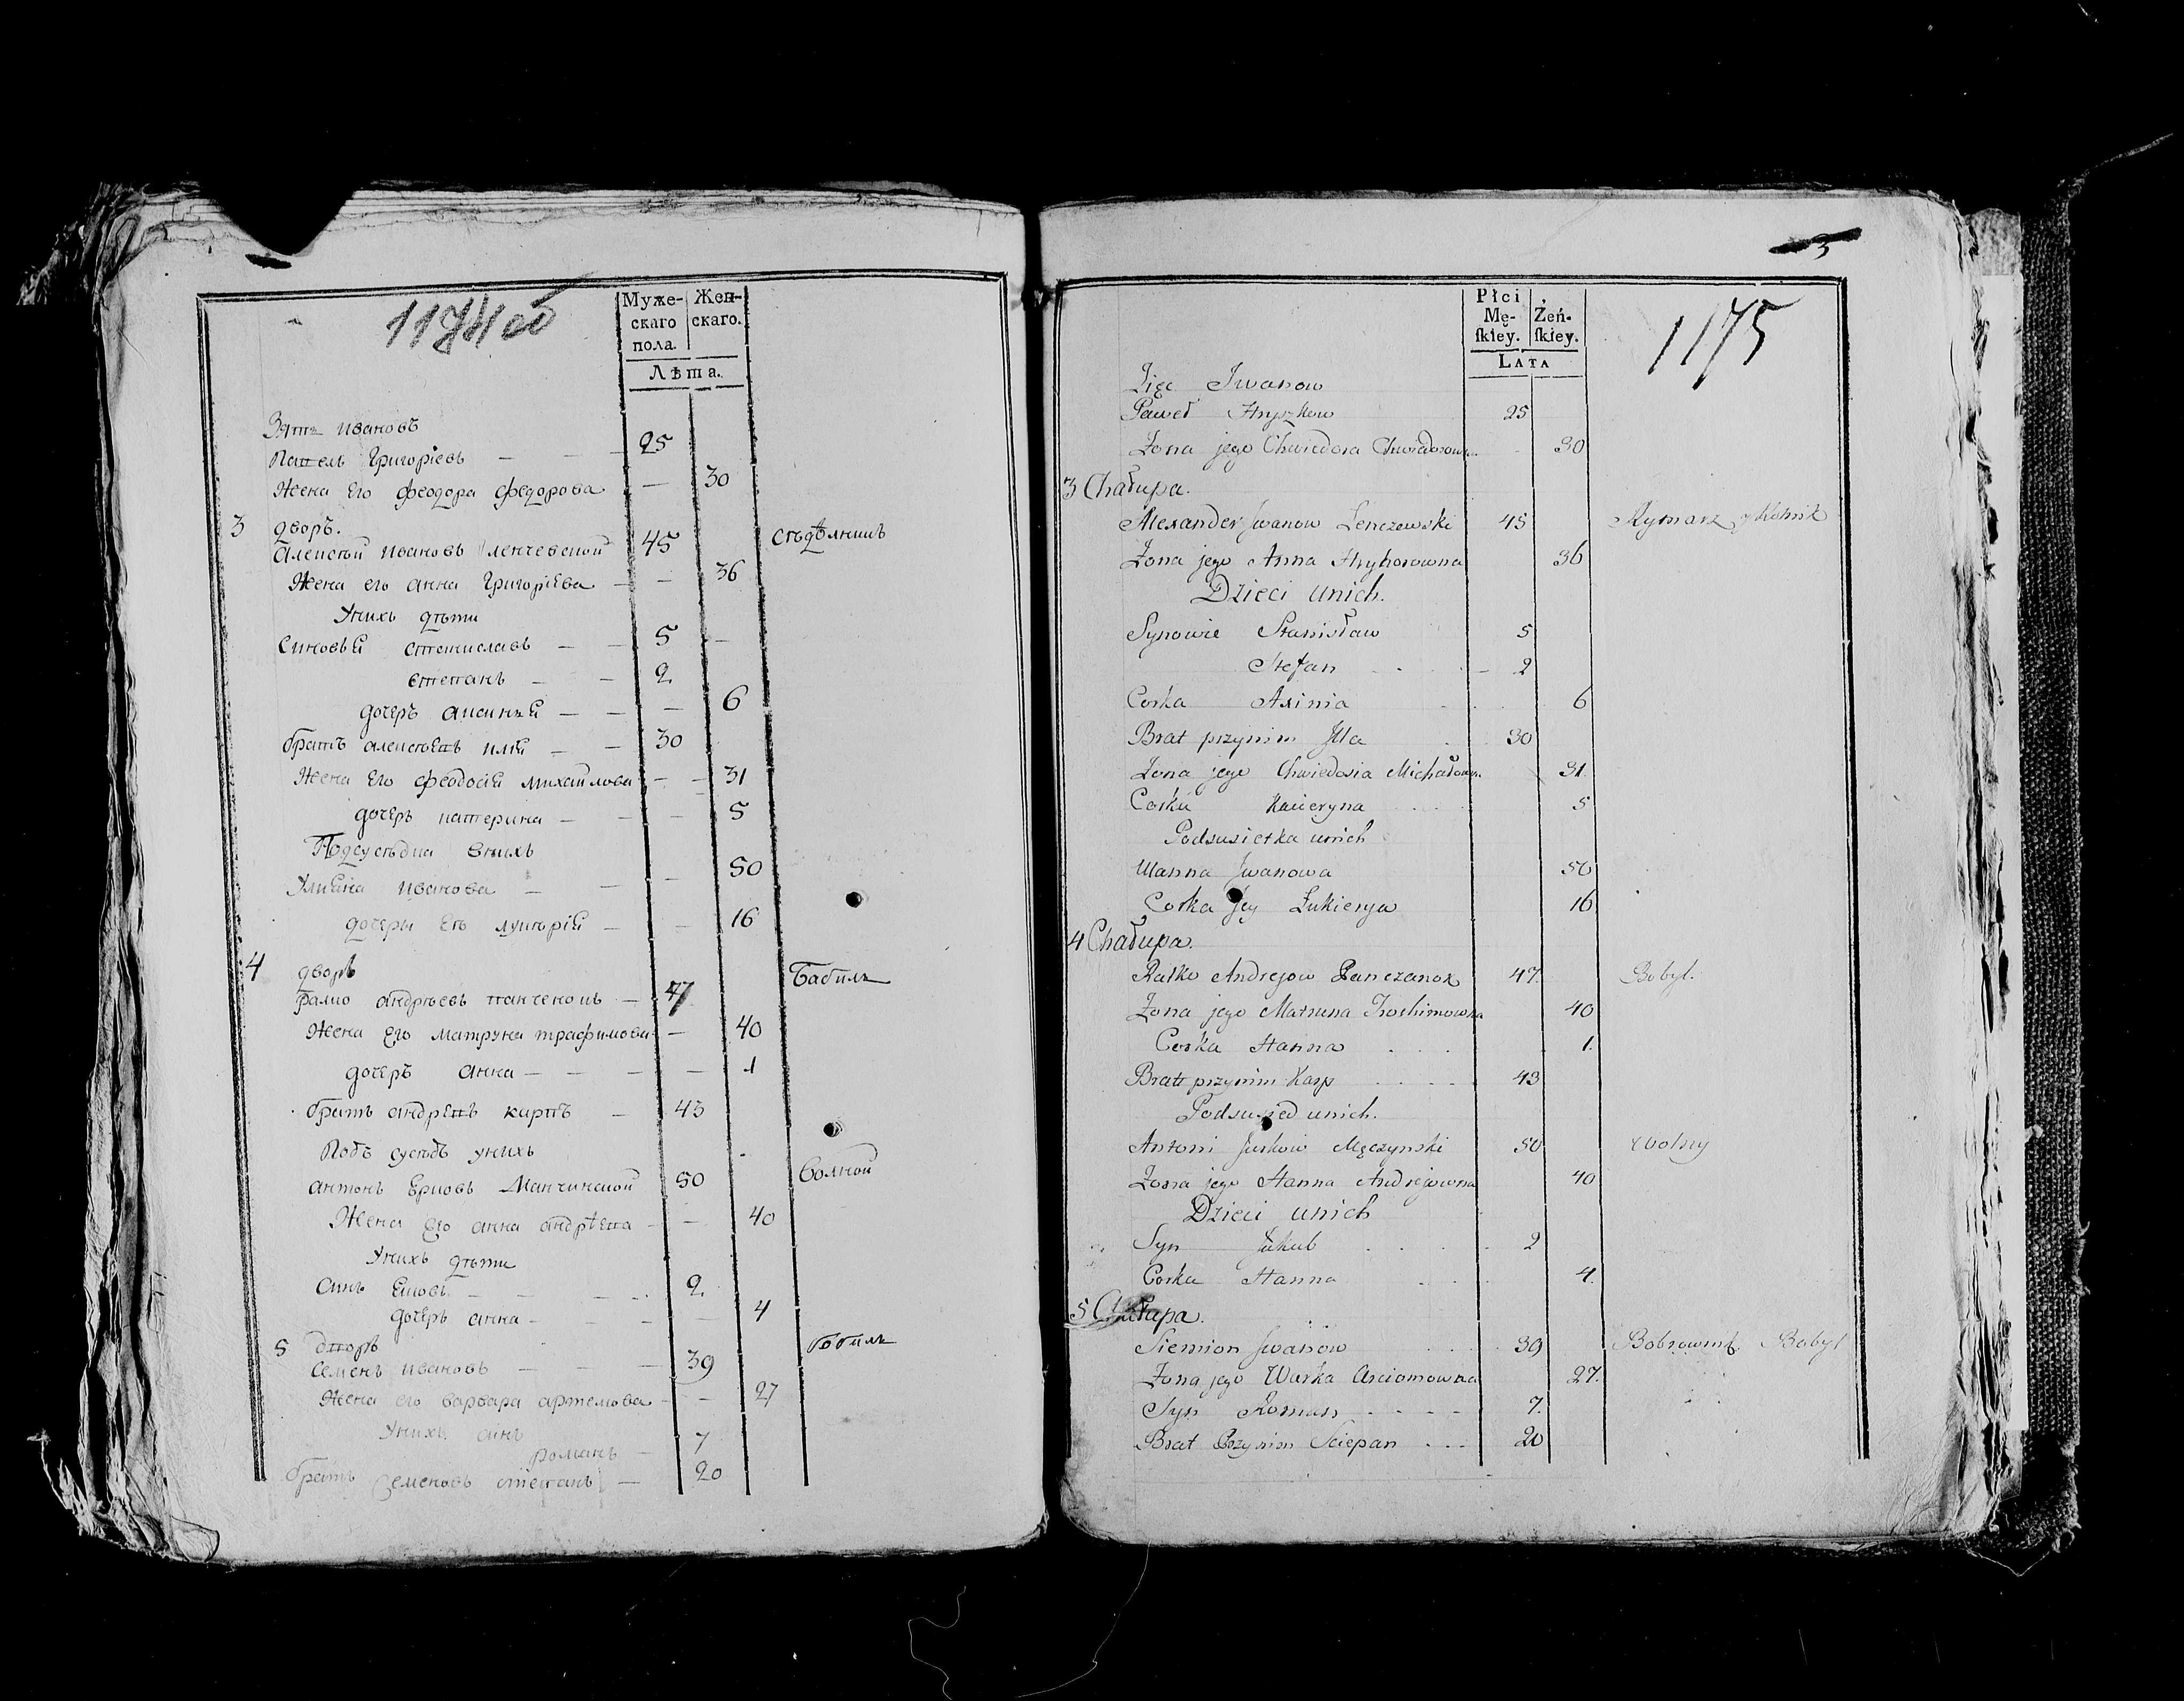 1174 об
Муже-
скаго
пола.
Жен-
скаго.
Лѣта.
Зять ивановъ
Павелъ Григоріевъ — — 25
Жена Его феодора федорова — 30
3 дворъ.
Алексѣй ивановъ ленчевской 45 сѣдѣлникъ
Жена его анна Григоріева — — 36
Унихъ дѣти
Синовья станиславъ — — 5 —
степанъ — — 2
дочеръ аксинья — — — 6
братъ алексѣевъ илья — — 30
Жена Его феодосія михайлова — — 31
дочеръ катерина — — — 5
Подсусѣдка внихъ
Улияна иванова — — — 50
дочеръ Еѣ лукѣрія — — 16
4 дворъ
ралко андрѣевъ панченокъ — 47 Бабиль
Жена Его матруна трафимова — 40
дочеръ анна — — — — — 1
братъ андрѣевъ карпъ — 43
Подъ сусѣдъ унихъ
антонъ Юрковъ Манчинской 50 Болной
Жена Его анна андрѣева — — 40
Унихъ дѣти
Синъ Яковъ — — — — 2
дочеръ анна — — — 4
5 дворъ бобиль
Семенъ ивановъ — — — 39
Жена его варвара артемова — — 27
Унихъ синъ
романъ — 7
братъ Семеновъ степанъ — 20
3
Płci
Mę-
skiey.
Żeń-
skiey.
LATA
1175
Zięć Iwanow
Paweł Hryszkow 25
Żona jego Chwiedora Chwiedorowna 30
3 Chałupa.
Alexander Iwanow Lenczewski 45 Rymarz y Rolnik
Żona jego Anna Hryhorowna 36
Dzieci unich.
Synowie Stanisław 5
Stefan 2
Corka Axinia 6
Brat przynim Illa 30
Żona jego Chwiedosia Michałown. 31
Corka Kacieryna 5
Podsusietka unich
Ulanna Iwanowa 50
Corka Jey Łukierya 16
4 Chałupa.
Ralko Andrejow Panczanok 47. Bobyl.
Żona jego Matruna Troshimowna 40
Corka Hanna 1.
Brat przynim Karp 43
Podsusied unich.
Antoni Jurkow Męczynski 50 Chory
Żona jego Hanna Andrejowna 40
Dzieci unich
Syn Jakub 2
Corka Hanna 4.
5 Chałupa.
Siemion Iwanow 39 Bobyl
Żona jego Warka Arciomowna 27.
Syn Roman 7.
Brat Przynim Sciepan 20